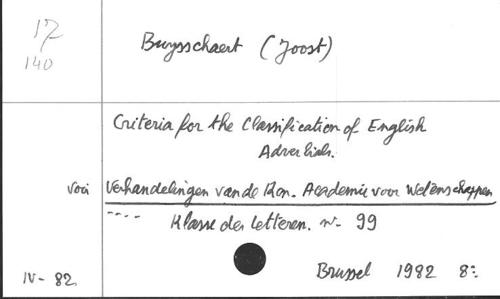 17
140
Buysschaert (Joost)
Criteria for the Classification of English
Adverbials.
voir Verhandelingen van de Kon. Academie voor Wetenschappen
---- Klasse der letteren. nr- 99
IV-82.
Brussel 1982 8: